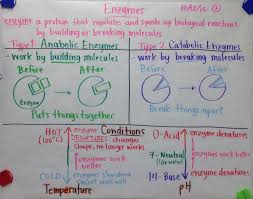 Enzymes
enzyme a protein that regulates and speeds up biological reactions
by building or breaking molecules
Type 1 Anabolic Enzymes
work by building molecules
Before After
Enzyme
Puts things together
Type 2 Catabolic Enzymes
work by breaking molecules
Before After
Break things apart
Conditions
HOT (100°C)
enzyme DENATURES changes
shape, no longer works
enzymes work better
COLD
enzymes
not work well
Temperature
0-Acid enzyme denatures
7-Neutral enzyme works better
14-Base enzyme denatures
pH